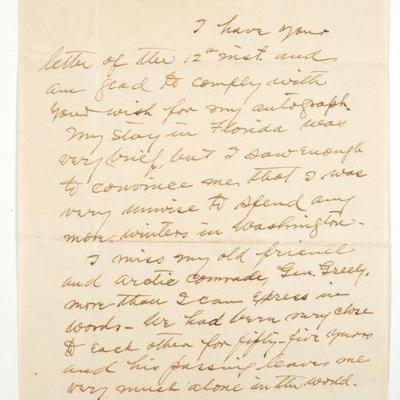 I have your
letter of the 12th inst. and
am glad to comply with
your wish for my autograph.
My stay in Florida was
very brief, but I saw enough
to convince me that I was
very unwise to spend any
more winters in Washington.
I miss my old friend
and arctic comrade, Gen. Greely,
more than I can express in
words - We had been very close
to each other for fifty-five years
and his passing leaves me
very much alone in the world.